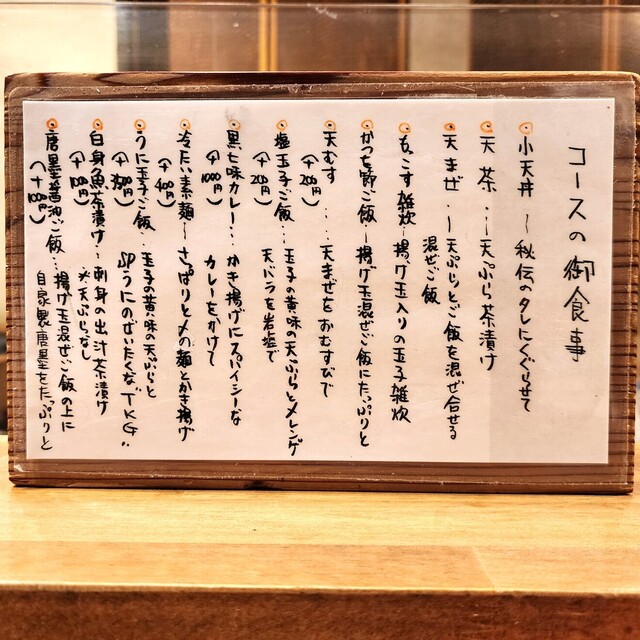 コースの御食事
小天丼 〜 秘伝のタレにくぐらせて
天茶 ‥〜天ぷら茶漬け
天まぜ ‥〜天ぷらとご飯を混ぜ合せる
混ぜご飯
もこす雑炊〜揚げ玉入りの玉子雑炊
かつを節ご飯〜揚げ玉混ぜご飯にたっぷりと
天むす ‥‥天まぜをおむすびで
(+200円)
塩玉子ご飯‥‥玉子の黄味の天ぷらとメレンゲ
(+200円) 天バラを岩塩で
黒七味カレー‥‥かき揚げにスパイシーな
(+1000円) カレーをかけて
冷たい素麺〜さっぱりと〆の麺とかき揚げ
(+400円)
うに玉子ご飯‥玉子の黄味の天ぷらと
SPうにのぜいたくな"TKG"
白身魚茶漬け‥刺身の出汁茶漬け
※天ぷらなし
唐墨醤油ご飯‥揚げ玉混ぜご飯の上に
自家製唐墨をたっぷりと